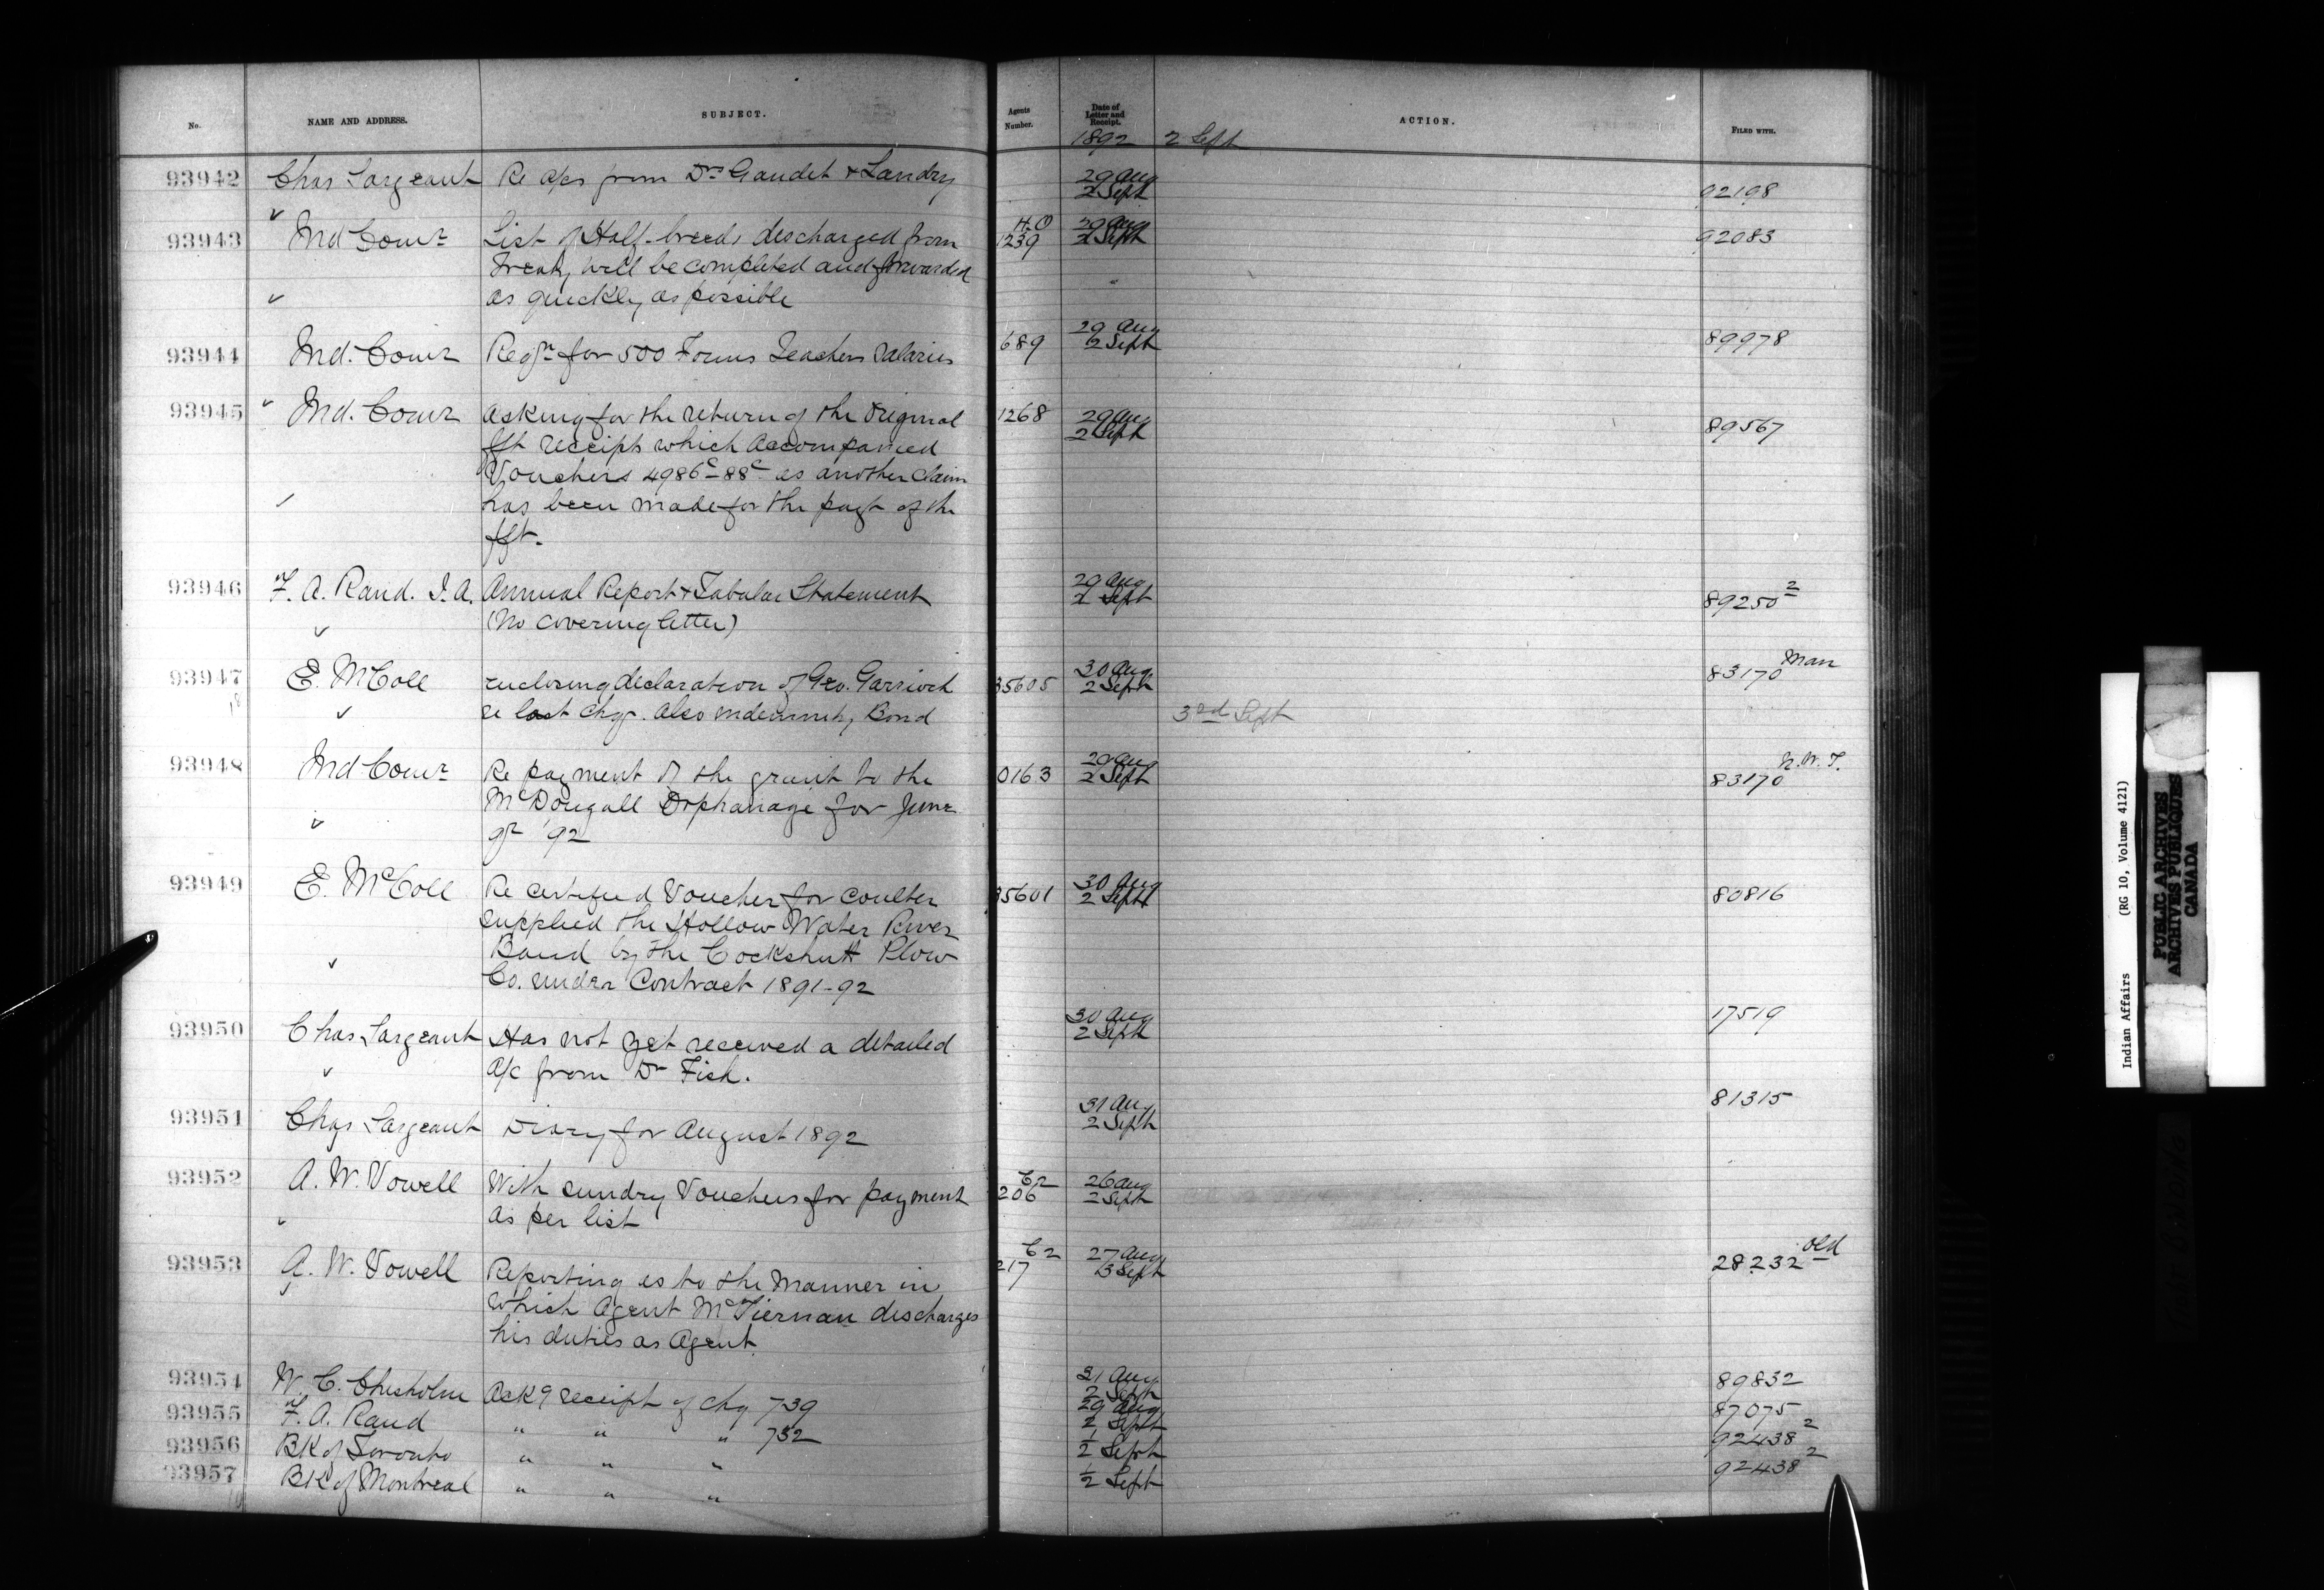 No. NAME AND ADDRESS. SUBJECT. Agents Number. Date of Letter and Receipt. ACTION. FILED WITH.
1892 2 Sept
93942 Chas Sargeant Re a/cs from Drs Gaudet & Landry 29 Aug 2 Sept 92198
93943 Ind Comr List of Half-breeds discharged from H.O 1239 29 Aug 2 Sept 92083
Treaty will be completed and forwarded
as quickly as possible
93944 Ind. Comr Reqn for 500 Forms Teachers Salaries 689 29 Aug 2 Sept 89978
93945 Ind. Comr Asking for the return of the original 1268 29 Aug 2 Sept 89567
fft receipts which accompanied
Vouchers 4986c-88c as another claim
has been made for the payt of the
fft.
93946 F. A. Rand. I.A. Annual Report & Tabular Statement 29 Aug 2 Sept 89250 2
(No covering letter)
93947 E. McColl enclosing declaration of Geo. Garrioch 35605 30 Aug 2 Sept 83170 Man
re lost chq. also indemnity Bond 3rd Sept
93948 Ind Comr Re payment of the grant to the 0163 29 Aug 2 Sept 83170 N.W.T.
McDougall Orphanage for June
qr '92
93949 E. McColl Re certified Voucher for coulter 35601 30 Aug 2 Sept 80816
supplied the Hollow Water River
Band by the Cockshutt Plow
Co. under Contract 1891-92
93950 Chas Sargeant Has not yet received a detailed 30 Aug 2 Sept 17519
a/c from Dr Fish.
93951 Chas Sargeant Diary for August 1892 31 Aug 2 Sept 81315
93952 A. W. Vowell With sundry Vouchers for payment C2 206 26 Aug 2 Sept
as per list
93953 A. W. Vowell Reporting as to the manner in C2 217 27 Aug 3 Sept 28232 old
which Agent McTiernan discharges
his duties as Agent
93954 W. C. Chisholm Ackg receipt of chq 739 31 Aug 2 Sept 89832
93955 F. A. Rand " " " 732 29 Aug 2 Sept 87075
93956 Bk of Toronto " " " 1/2 Sept 92438 2
93957 Bk of Montreal " " " 1/2 Sept 92438 2
Indian Affairs (RG 10, Volume 4121)
PUBLIC ARCHIVES
ARCHIVES PUBLIQUES
CANADA